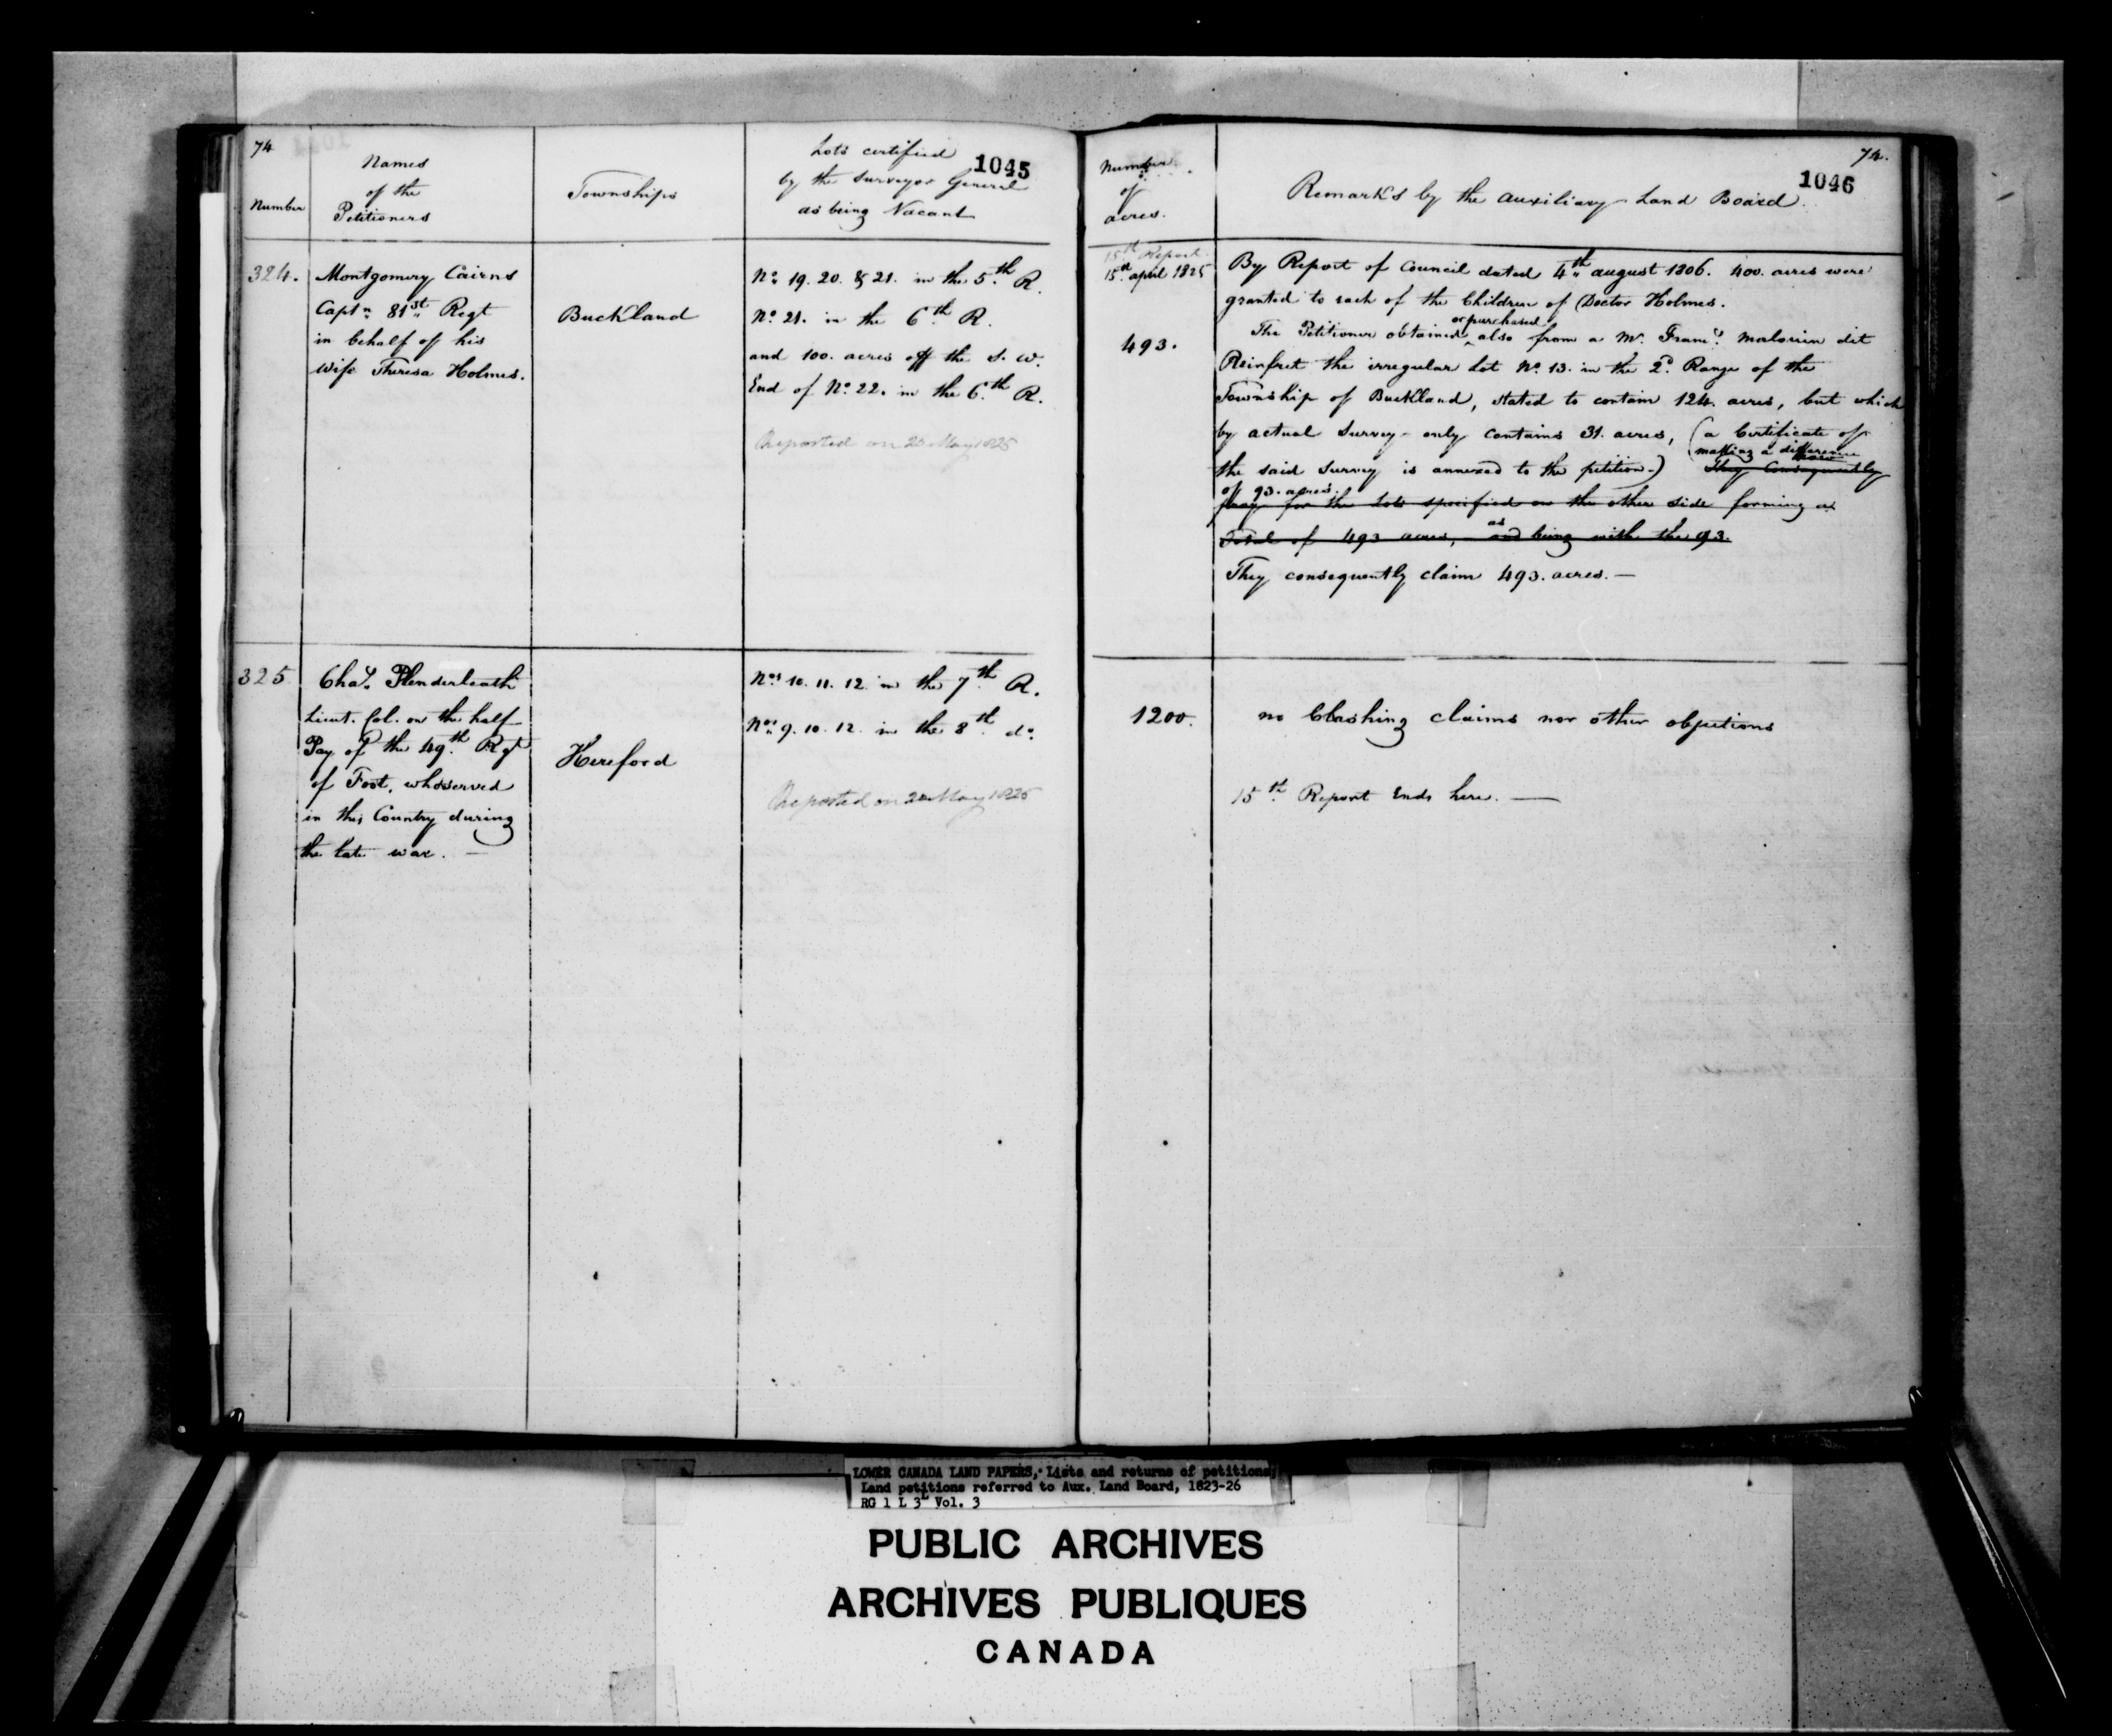 74
Number
Names
of the
Petitioners
Townships
Lots certified
by the Surveyor General
as being Vacant
1045
324.
Montgomery Cairns
Captn 81st Regt
in behalf of his
Wife Theresa Holmes.
Buckland
No. 19. 20. & 21. in the 5th R.
No. 21. in the 6th R.
and 100. acres off the S. W.
End of No. 22. in the 6th R.
Reported on 20 May 1825
325
Chas. Plenderleath
Lieut. Col. on the half
Pay of the 49th Rgt
of Foot, who served
in this Country during
the late war. —
Hereford
Nos 10. 11. 12. in the 7th R.
Nos 9. 10. 12. in the 8th do.
Reported on 20 May 1825
Number
of
acres.
Remarks by the Auxiliary Land Board.
74.
1046
15th Report
15th april 1825
493.
By Report of Council dated 4th august 1806. 400. acres were
granted to each of the Children of Doctor Holmes.
or purchased
The Petitioner obtained also from a Mr. Frans. Malouin dit
Reinfret the irregular Lot No. 13. in the 2d. Range of the
Township of Buckland, stated to contain 124. acres, but which
by actual Survey only contains 31. acres, (a Certificate of
making a difference
the said Survey is annexed to the petition.) They Consequently
of 93. acres.
pray for the Lots specified on the other side forming a
Total of 493 acres, as and being with the 93.
They consequently claim 493. acres. —
1200.
no Clashing claims nor other objections
15th Report Ends here. —
LOWER CANADA LAND PAPERS, Lists and returns of petitions;
Land petitions referred to Aux. Land Board, 1823-26
RG 1 L 3L Vol. 3
PUBLIC ARCHIVES
ARCHIVES PUBLIQUES
CANADA